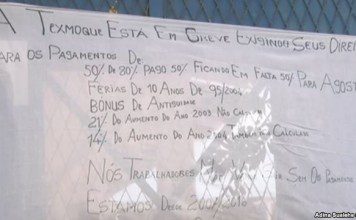 A TEXMOQUE ESTÁ EM GREVE EXIGINDO SEUS DIREI
PARA OS PAGAMENTOS DE:
50% DE 80% PAGO 50% FICANDO EM FALTA 50% PARA AGOST
FERIAS DE 10 ANOS DE 95/2004
BONUS DE ANTIGUIDADE
21% DO AUMENTO DO ANO 2003 NÃO CALCULAM
14% DO AUMENTO DO ANO 2004 TAMBEM NÃO CALCULAM
NÓS TRABALHADORES SEM OS PAGAMENTOS
ESTAMOS DESDE
Adina Sualehe